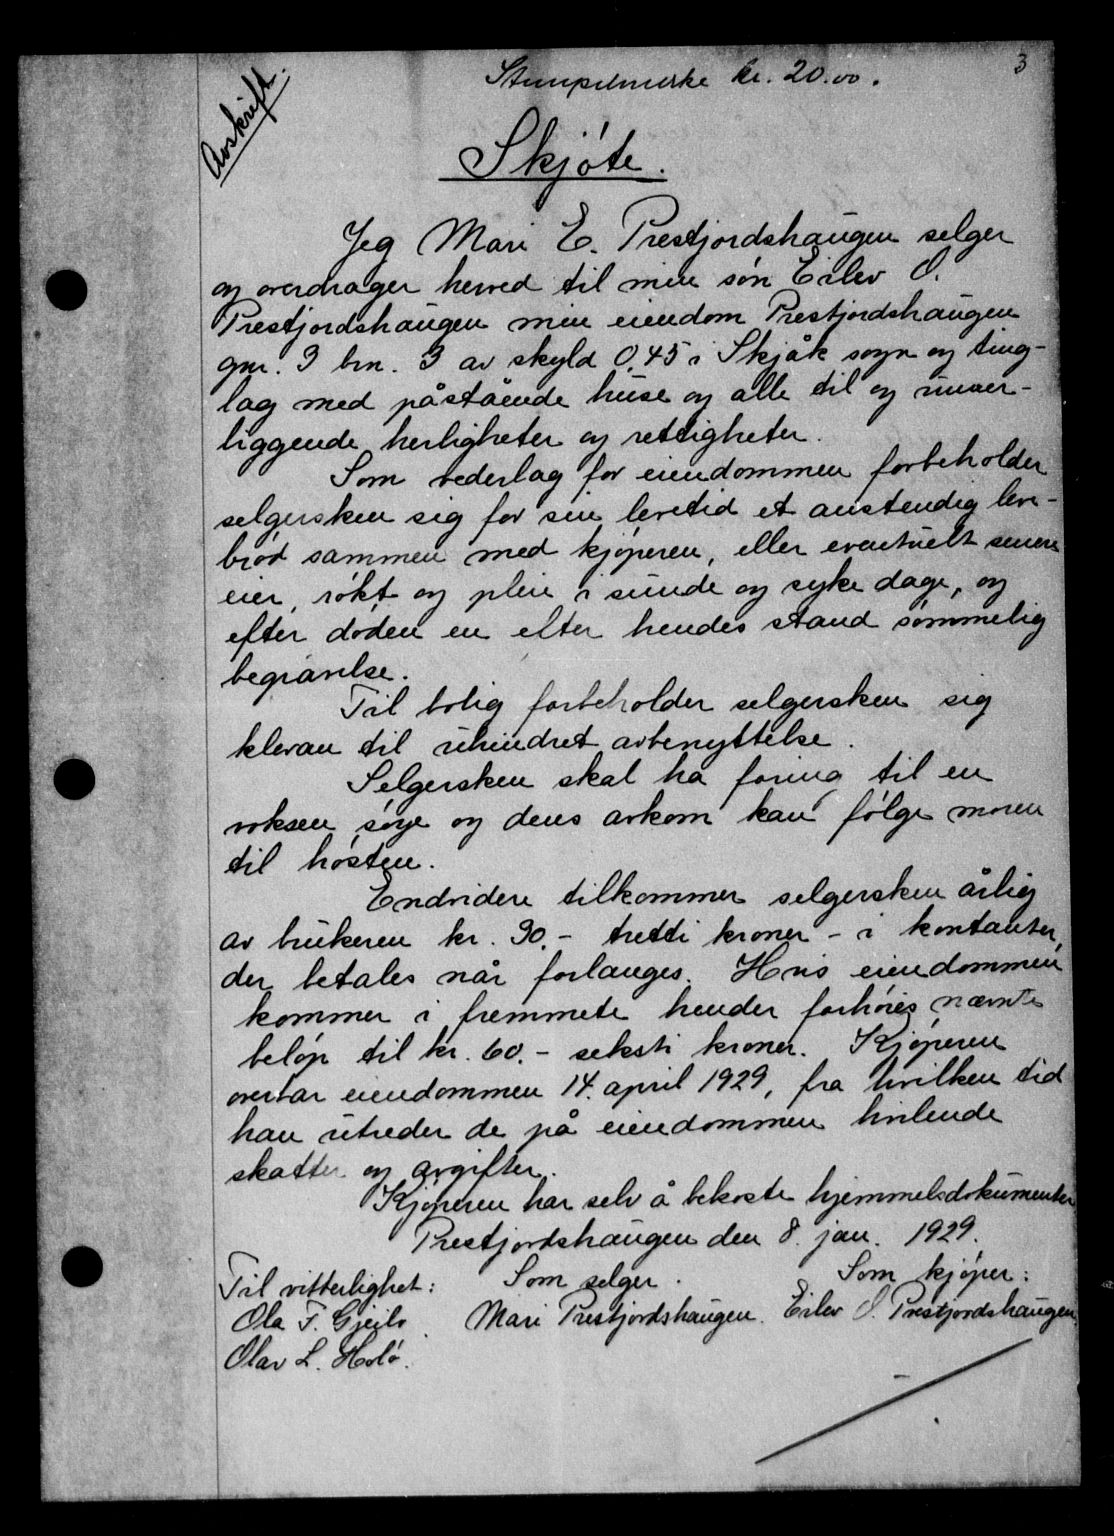 3
Stempelmerke kr. 20.00.
Avskrift.
Skjøte.
Jeg Mari E. Prestjordshaugen selger
og overdrager herved til min søn Eilev O.
Prestjordshaugen min eiendom Prestjordshaugen
gnr. 3 bnr. 3 av skyld 0,45 i Skjåk sogn og ting-
lag med påstående huse og alle til og under-
liggende herligheter og rettigheter.
Som vederlag for eiendommen forbeholder
selgersken sig for sin levetid et anstendig leve-
brød sammen med kjøperen, eller eventuelt senere
eier, røkt og pleie i sunde og syke dage, og
efter døden en efter hendes stand sømmelig
begravelse.
Til bolig forbeholder selgersken sig
klevan til uhindret avbenyttelse.
Selgersken skal ha foring til en
voksen søye og dens avkom kan følge moren
til høsten.
Endvidere tilkommer selgersken årlig
av brukeren kr. 30.- tretti kroner - i kontanter,
der betales når forlanges. Hvis eiendommen
kommer i fremmete hender forhøies nævnte
beløp til kr. 60.- seksti kroner. Kjøperen
overtar eiendommen 14. april 1929, fra hvilken tid
han utreder de på eiendommen hvilende
skatter og avgifter.
Kjøperen har selv å bekoste hjemmelsdokumenter
Prestjordshaugen den 8. jan. 1929.
Til vitterlighet: Som selger. Som kjøper:
Ola F. Gjeilo. Mari Prestjordshaugen. Eilev O. Prestjordshaugen.
Olav L. Holø.